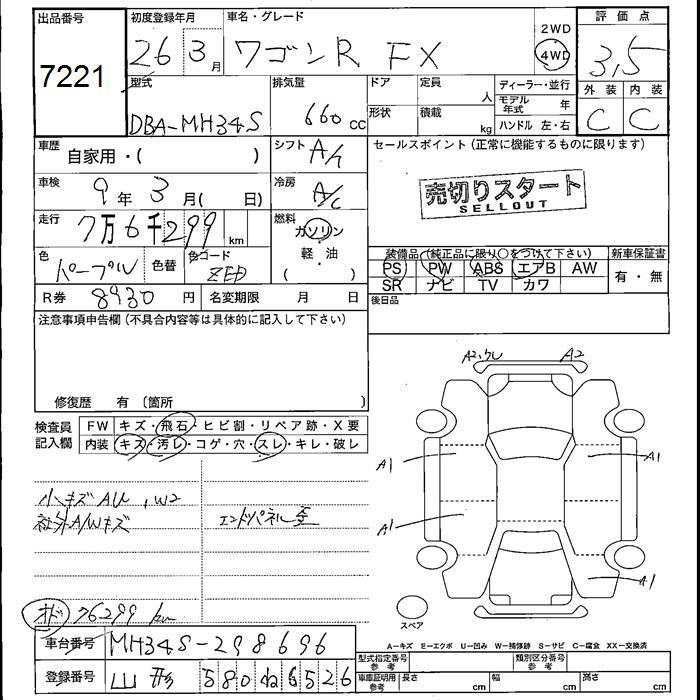 出品番号
7221
初度登録年月
26 3月
車名・グレード
ワゴンR FX
2WD
4WD
評価点
3.5
外装 内装
C C
型式
DBA-MH34S
排気量
660cc
ドア
形状
定員
人
積載
kg
ディーラー・並行
モデル年式 年
ハンドル 左・右
車歴
自家用・( )
シフト
A/
車検
9年 3月( 日)
冷房
A/C
走行
7万6千299km
燃料
ガソリン
軽・油
( )
色
パープル
色替
色コード
ZED
R券 8930円
名変期限 月 日
セールスポイント(正常に機能するものに限ります)
売切りスタート
SELLOUT
装備品(純正品に限り〇をつけて下さい)
新車保証書
PS PW ABS エアB AW
SR ナビ TV カワ
有・無
後日品
注意事項申告欄(不具合内容等は具体的に記入して下さい)
修復歴 有〔箇所 〕
検査員記入欄
FW キズ・飛石・ヒビ割・リペア跡・X要
内装 キズ・汚レ・コゲ・穴・スレ・キレ・破レ
小キズAU, W2
社外A/Wキズ
エンドパネル歪
オド 76299 km
A2, A2
A1 A1
A1
A1
スペア
A-キズ E-エクボ U-凹み W-補修跡 S-サビ C-腐食 XX-交換済
車台番号 MH34S-298696
登録番号 山形 580 ね 6526
型式指定番号 参考
類別区分番号 参考
車庫証明用 参考
長さ cm 幅 cm 高さ cm